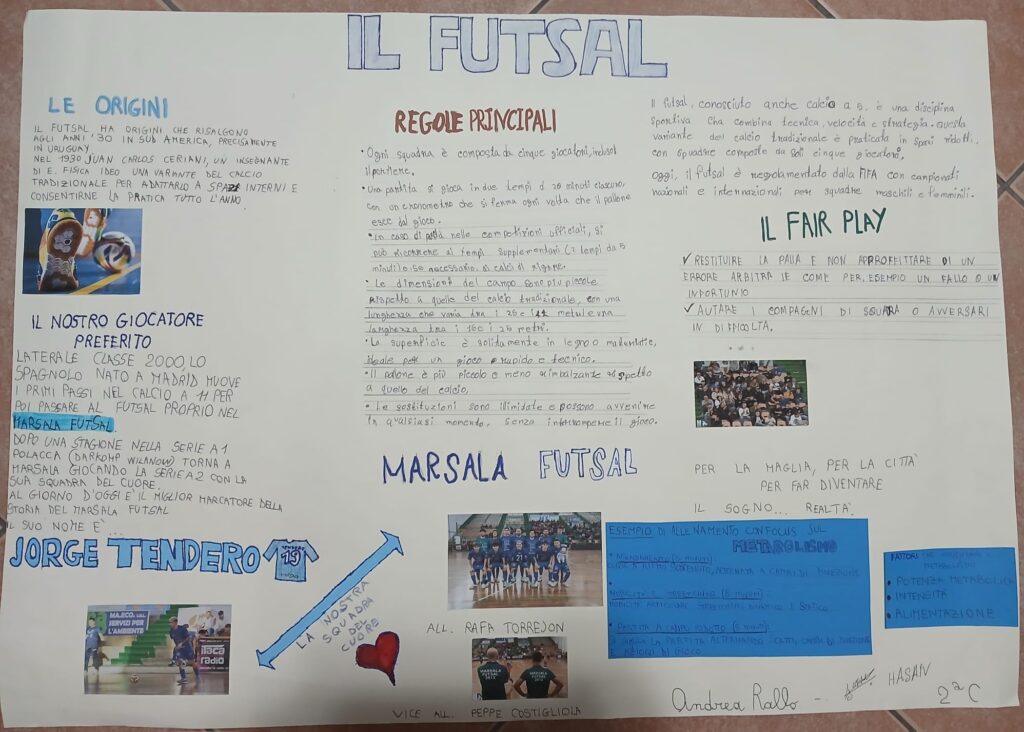 IL FUTSAL
LE ORIGINI
IL FUTSAL HA ORIGINI CHE RISALGONO
AGLI ANNI '30 IN SUD AMERICA, PRECISAMENTE
IN URUGUAY.
NEL 1930 JUAN CARLOS CERIANI, UN INSEGNANTE
DI E. FISICA IDEO UNA VARIANTE DEL CALCIO
TRADIZIONALE PER ADATTARLO A SPAZI INTERNI E
CONSENTIRNE LA PRATICA TUTTO L'ANNO.
IL NOSTRO GIOCATORE
PREFERITO
LATERALE CLASSE 2000, LO
SPAGNOLO NATO A MADRID MUOVE
I PRIMI PASSI NEL CALCIO A 11 PER
POI PASSARE AL FUTSAL PROPRIO NEL
MARSALA FUTSAL.
DOPO UNA STAGIONE NELLA SERIE A1
POLACCA (DARKOMP WILANOW) TORNA A
MARSALA GIOCANDO LA SERIE A2 CON LA
SUA SQUADRA DEL CUORE.
AL GIORNO D'OGGI E' IL MIGLIOR MARCATORE DELLA
STORIA DEL MARSALA FUTSAL
IL SUO NOME E'...
JORGE TENDERO
15
MA.ECO. SRL
SERVIZI PER
L'AMBIENTE
itaca
radio
LA NOSTRA
SQUADRA
DEL
CUORE
REGOLE PRINCIPALI
• Ogni squadra è composta da cinque giocatori, incluso
il portiere.
• Una partita si gioca in due tempi di 20 minuti ciascuno,
con un cronometro che si ferma ogni volta che il pallone
esce dal gioco.
• In caso di parità nelle competizioni ufficiali, si
può ricorrere ai tempi supplementari (2 tempi da 5
minuti) o se necessario, ai calci di rigore.
• Le dimensioni del campo sono più piccole
rispetto a quelle del calcio tradizionale, con una
lunghezza che varia tra i 25 e i 42 metri e una
larghezza tra i 16 e i 25 metri.
• La superficie è solitamente in legno o
ideale per un gioco rapido e tecnico.
• Il pallone è più piccolo e meno rimbalzante rispetto
a quello del calcio.
• Le sostituzioni sono illimitate e possono avvenire
in qualsiasi momento, senza interrompere il gioco.
MARSALA FUTSAL
ALL. RAFA TORREJON
MARSALA
FUTSAL
2012
MARSALA
FUTSAL
2012
VICE ALL. PEPPE COSTIGLIOLA
Il futsal, conosciuto anche calcio a 5, è una disciplina
sportiva cha combina tecnica, velocità e strategia. Questa
variante del calcio tradizionale è praticata in spazi ridotti,
con squadre composte da soli cinque giocatori.
Oggi, il futsal è regolamentato dalla FIFA con campionati
nazionali e internazionali per squadre maschili e femminili.
IL FAIR PLAY
✓ RESTITUIRE LA PALLA E NON APPROFFITTARE DI UN
ERRORE ARBITRALE COME PER ESEMPIO UN FALLO O UN
INFORTUNIO
✓ AIUTARE I COMPAGNI DI SQUADRA O AVVERSARI
IN DIFFICOLTA.
PER LA MAGLIA, PER LA CITTÀ
PER FAR DIVENTARE
IL SOGNO... REALTÀ.
ESEMPIO DI ALLENAMENTO CON FOCUS SUL
METABOLISMO
• PARTITA A CAMPO RIDOTTO
FATTORI CHE
METABOLISMO
• POTENZA METABOLICA
• INTENSITÀ
• ALIMENTAZIONE
Andrea Rallo -
HASAN
2ª C